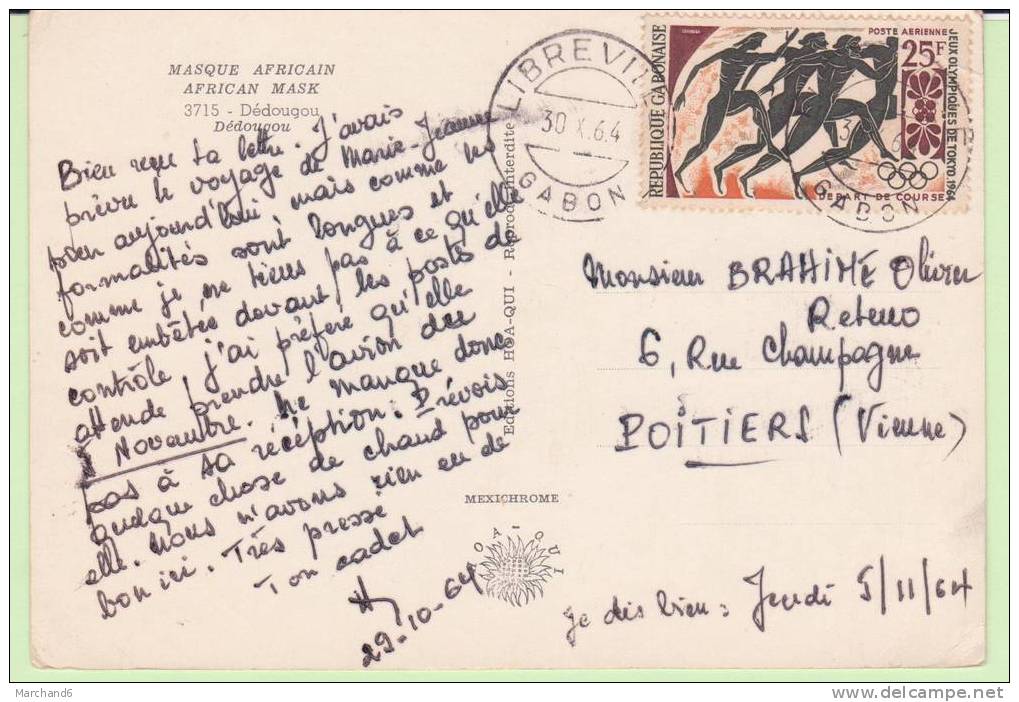 MASQUE AFRICAIN
AFRICAN MASK
3715 - Dédougou
Dédougou
Bien reçu ta lettre. J'avais
prévu le voyage de Marie-Jeanne
pour aujourd'hui, mais comme les
formalités sont longues et
comme je ne tiens pas à ce qu'elle
soit embêtée devant les postes de
contrôle, j'ai préféré qu'elle
attende prendre l'avion du
5 Novembre. Ne manque donc
pas à sa réception. Prévois
quelque chose de chaud pour
elle. Nous n'avons rien eu de
bon ici. Très pressé
Ton cadet
29-10-64
Editions HOA-QUI - Reproduction interdite
MEXICHROME
HOA-QUI
LIBREVILLE
30 X.64
GABON
REPUBLIQUE GABONAISE
POSTE AERIENNE
25F
JEUX OLYMPIQUES DE TOKYO 1964
DEPART DE COURSE
GABON
Monsieur BRAHIMÉ Olivier
Reteno
6, Rue Champagne
POITIERS (Vienne)
je dis bien : Jeudi 5/11/64
Marchand6
www.delcampe.net